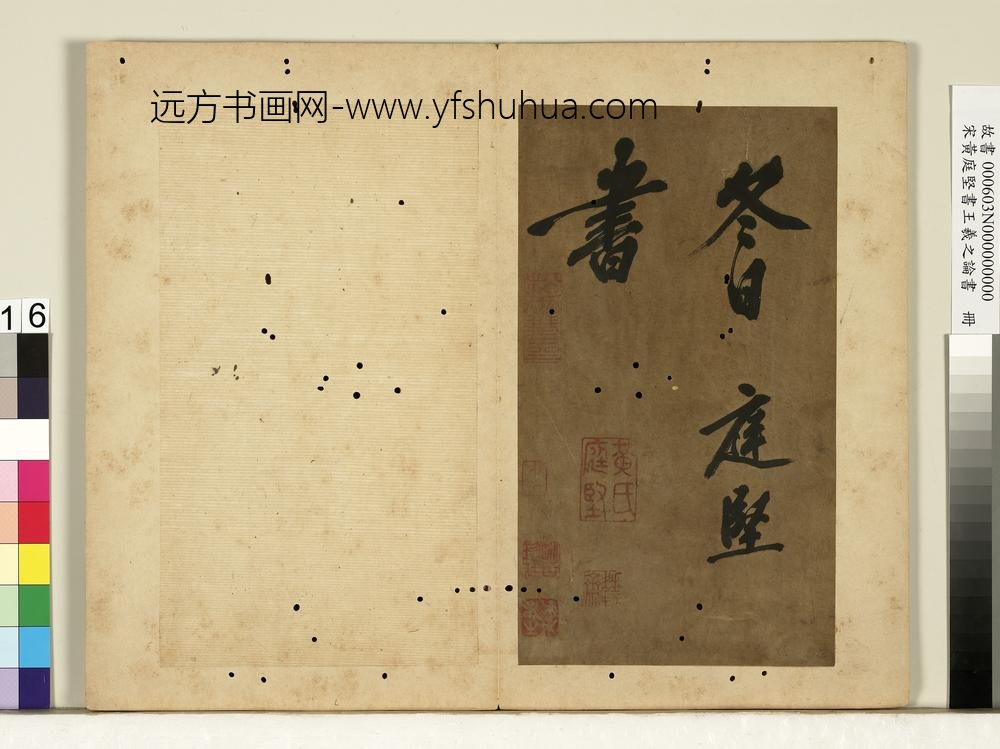 远方书画网-www.yfshuhua.com
冬日 庭堅
書
黃氏
庭堅
故書 000603N000000000
宋黃庭堅書王羲之論書 冊
16